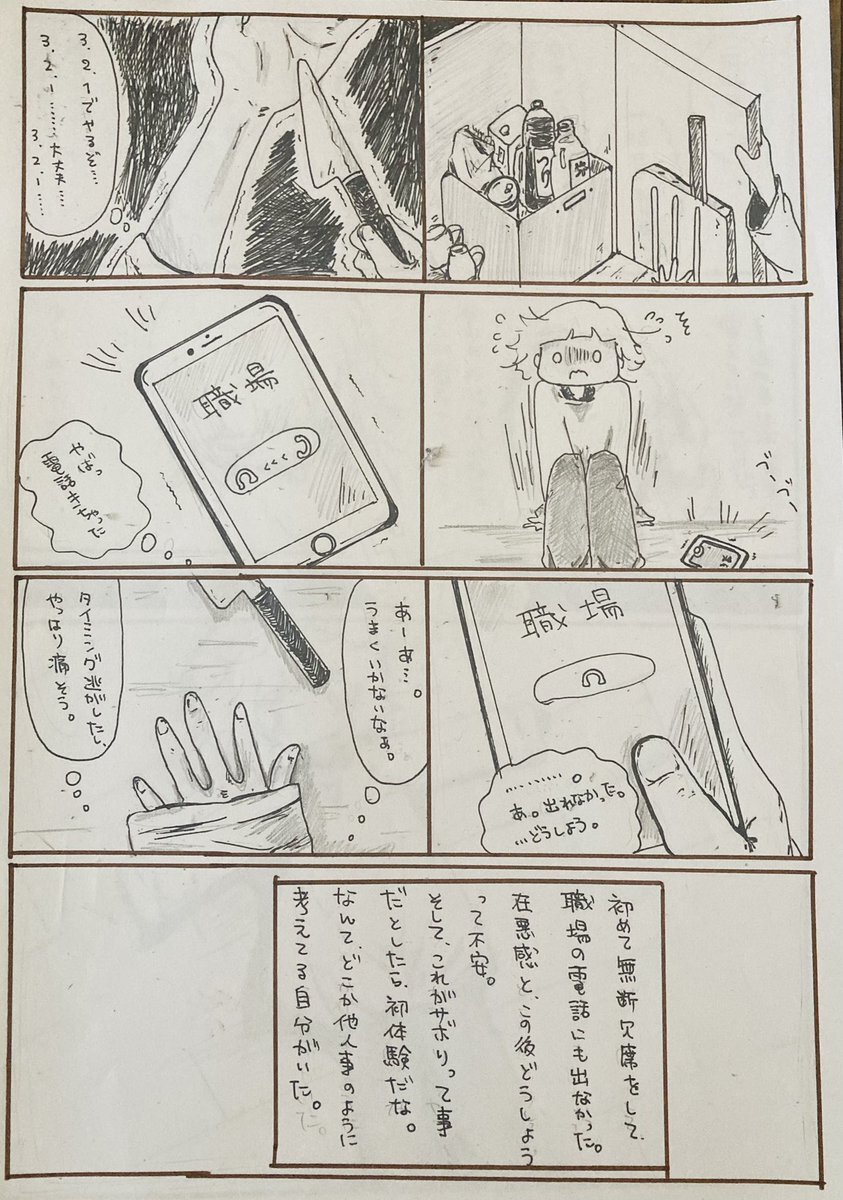 3.2.1でやるぞ…
3.2.1……大丈夫…
3.2.1……
職場
やばっ
電話きちゃった
ブーブー
職場
…………。
あ。出れなかった。
…どうしよう。
あーあ…。
うまくいかないなぁ。
タイミング逃がしたし、
やっぱり痛そう。
初めて無断欠席をして、
職場の電話にも出なかった。
在悪感と、この後どうしよう
って不安。
そして、これがサボりって事
だとしたら、初体験だな。
なんて、どこか他人事のように
考えてる自分がいた。